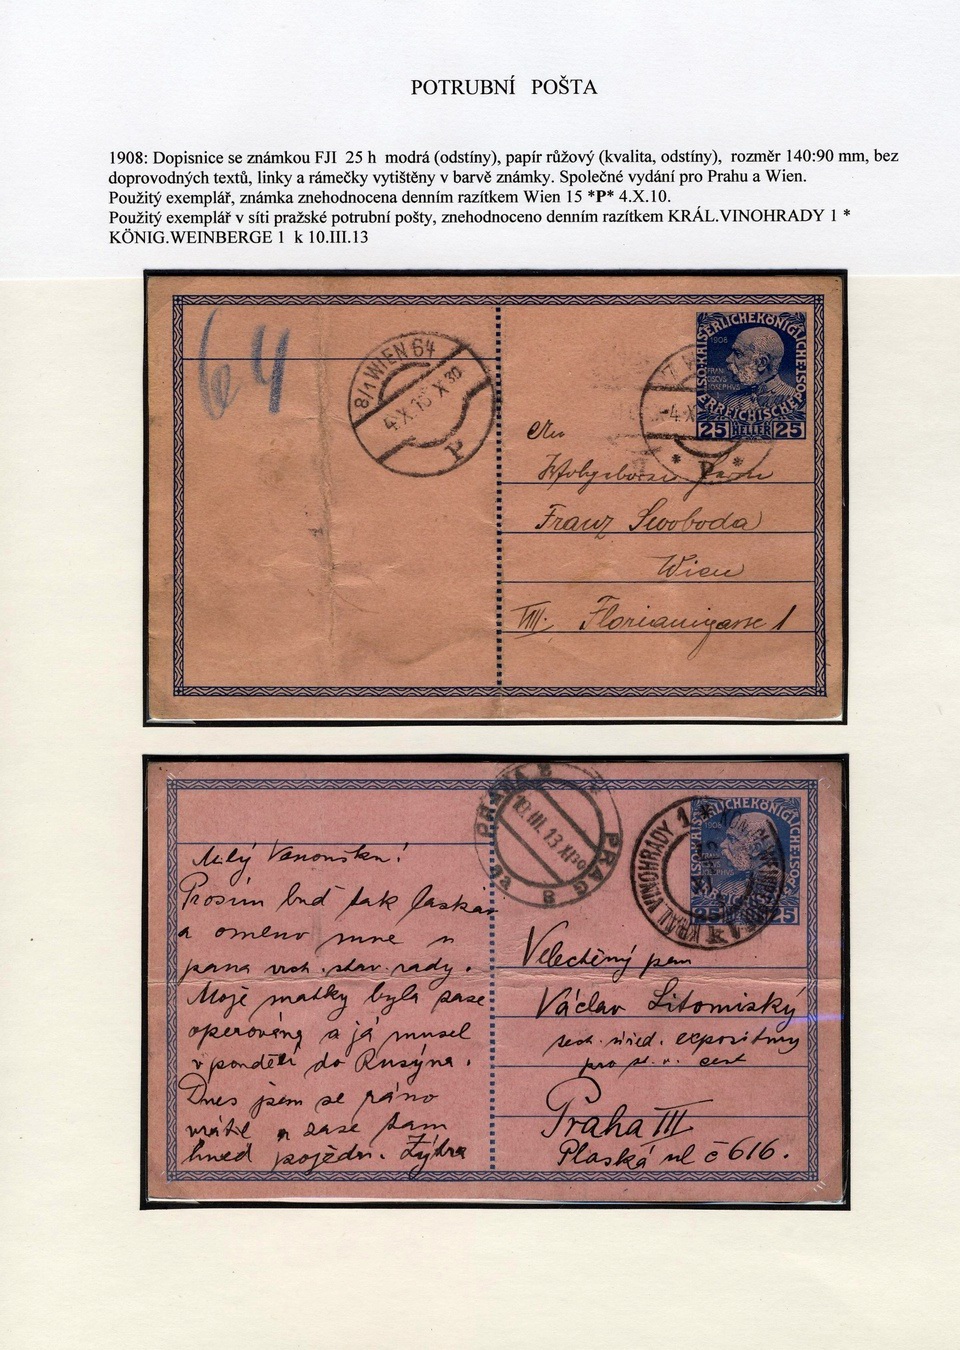 POTRUBNÍ POŠTA
1908: Dopisnice se známkou FJI 25 h modrá (odstíny), papír růžový (kvalita, odstíny), rozměr 140:90 mm, bez
doprovodných textů, linky a rámečky vytištěny v barvě známky. Společné vydání pro Prahu a Wien.
Použitý exemplář, známka znehodnocena denním razítkem Wien 15 *P* 4.X.10.
Použitý exemplář v síti pražské potrubní pošty, znehodnoceno denním razítkem KRÁL.VINOHRADY 1 *
KÖNIG.WEINBERGE 1 k 10.III.13
64
8/1 WIEN 64
P
KAISERLICHEKÖNIGLICHE
ÖSTERREICHISCHE
1908
25 HELLER 25
* P *
An
Franz Swoboda
Wien
VIII. Florianigasse 1
PRAHA 8
13 XI 30
PRAG 8
8a
KRÁL. VINOHRADY 1 *
25 25
Milý
Prosím buď tak laskav
a omluv mne u
pana vrch. stav. rady.
Moje matky byla zase
operována a já musel
v pondělí do
Dnes jsem se ráno
vrátil a zase tam
hned pojedu.
Velectěný pan
Václav Litomiský
tech. úřed. expositury
pro
Praha III
Plaská ul č 616.